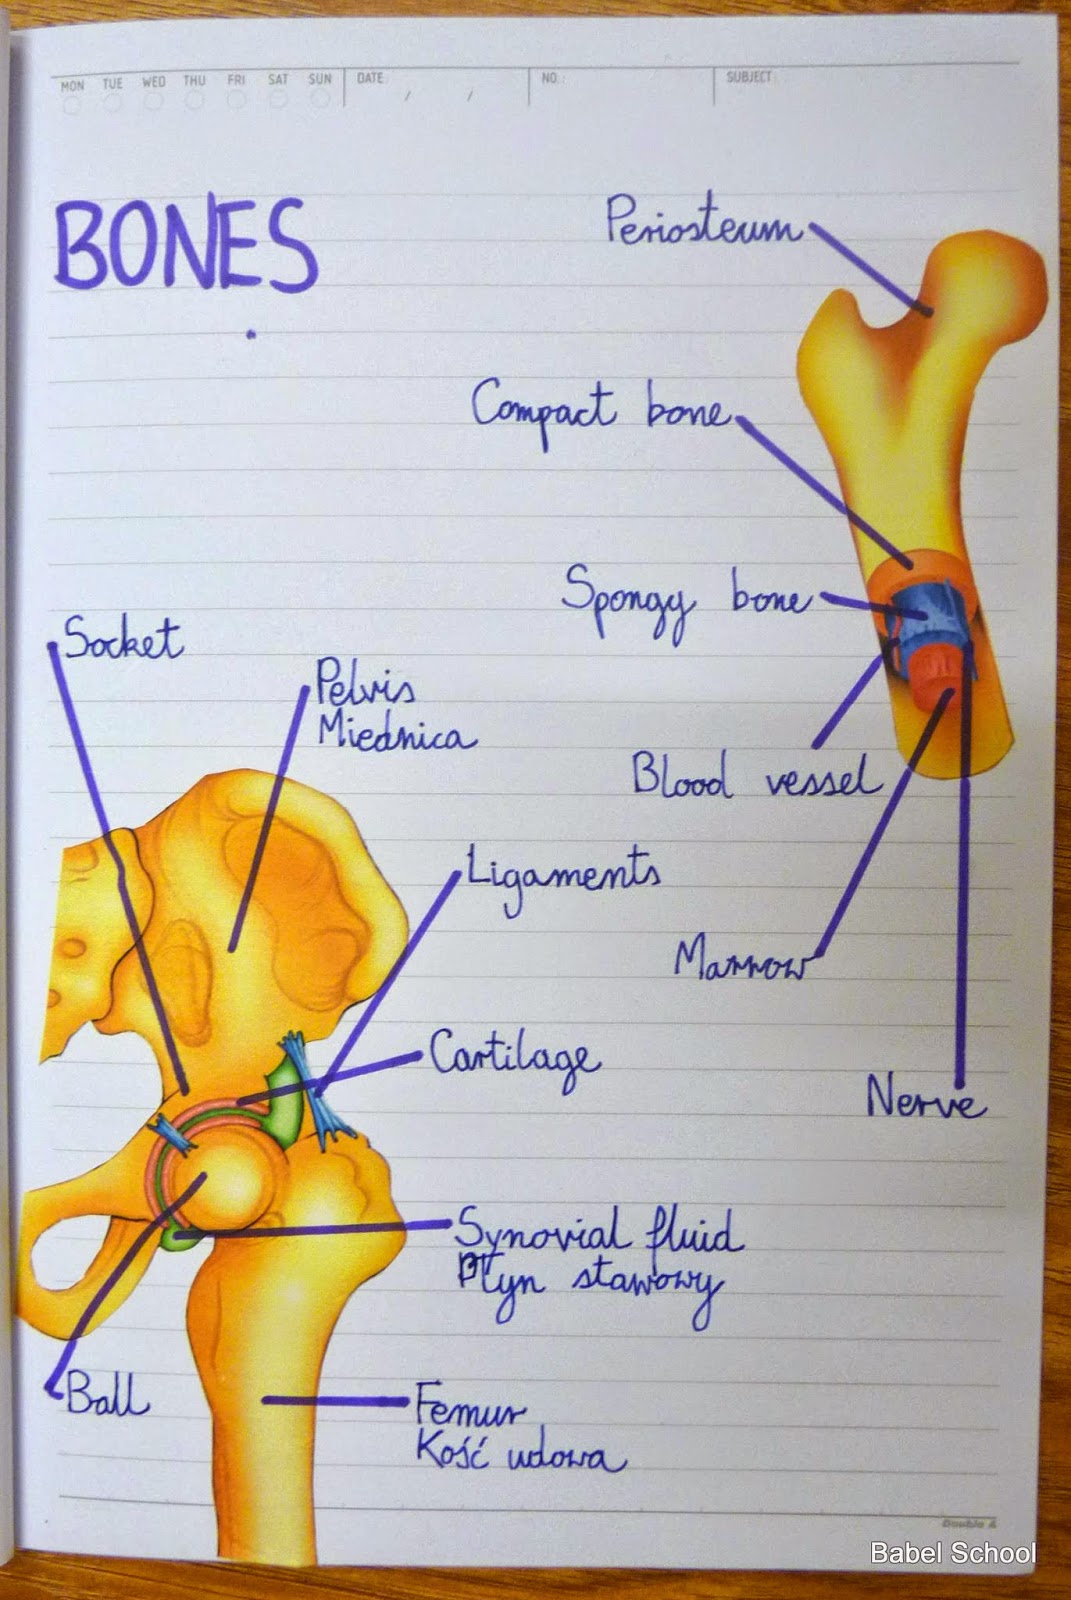 MON TUE WED THU FRI SAT SUN DATE / / NO. SUBJECT
BONES
Periosteum
Compact bone
Spongy bone
Socket
Pelvis
Miednica
Blood vessel
Ligaments
Marrow
Cartilage
Nerve
Synovial fluid
Płyn stawowy
Ball
Femur
Kość udowa
Double A
Babel School